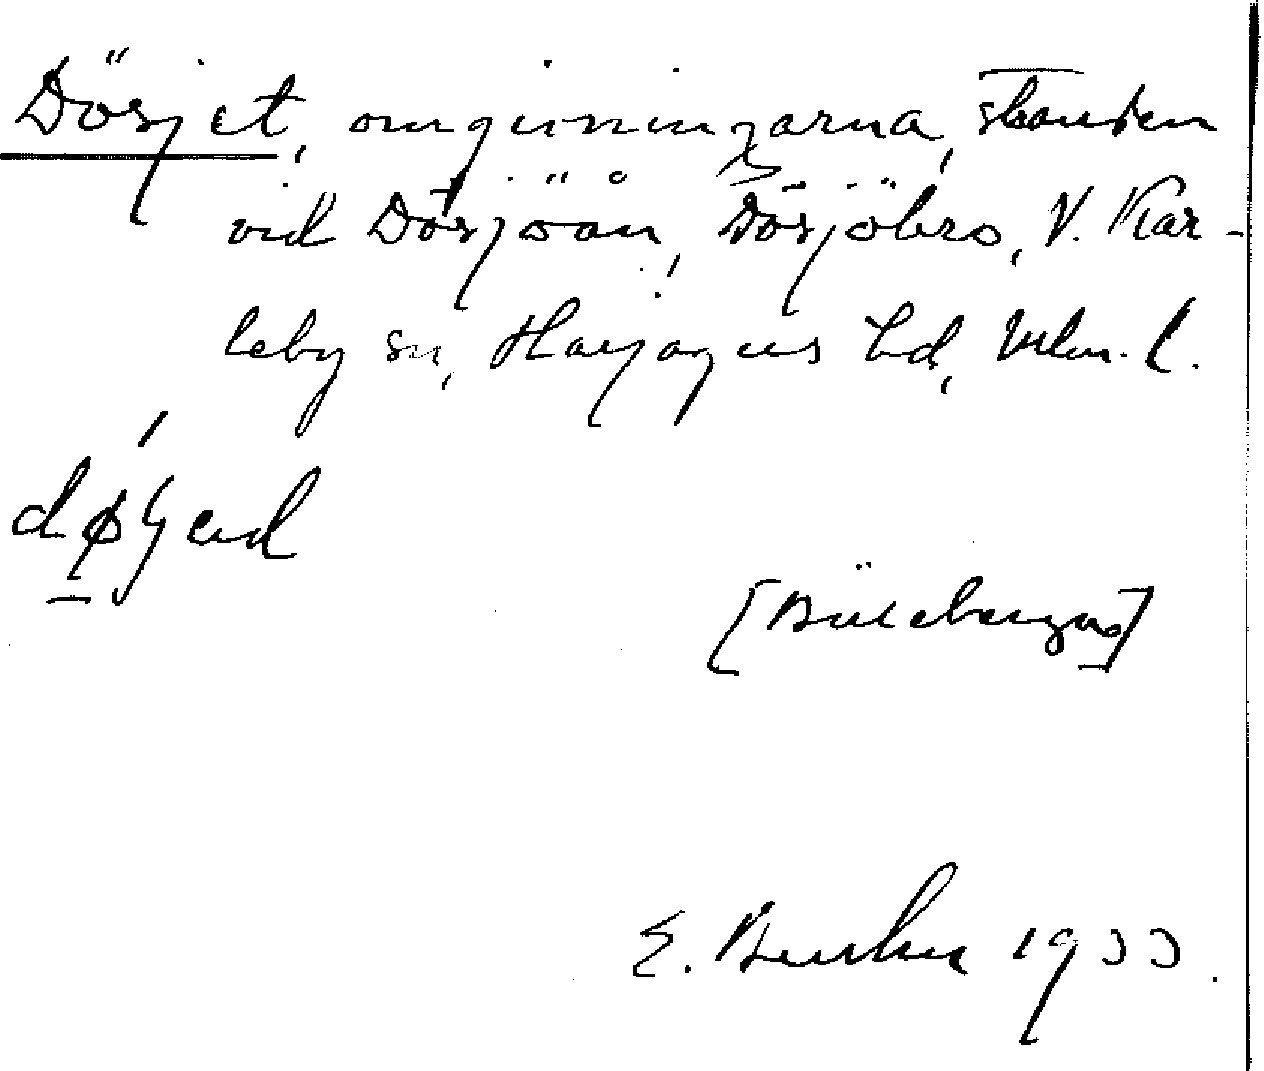 Dösjet, omgivningarna, stranden
vid Dösjöån, Dösjöbro, V. Kar-
leby sn, Harjagers hd, Mlm. l.
[Billebergas]
E. 1933.